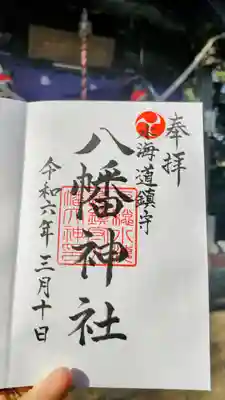 奉拝
水海道鎮守
八幡神社
令和六年三月十日